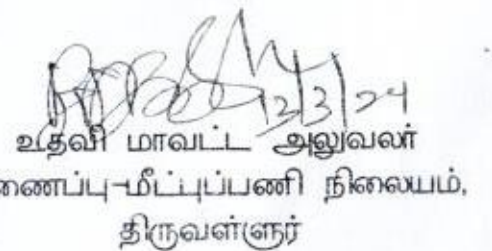 12/3/24
உதவி மாவட்ட அலுவலர்
ணைப்பு-மீட்புப்பணி நிலையம்,
திருவள்ளுர்